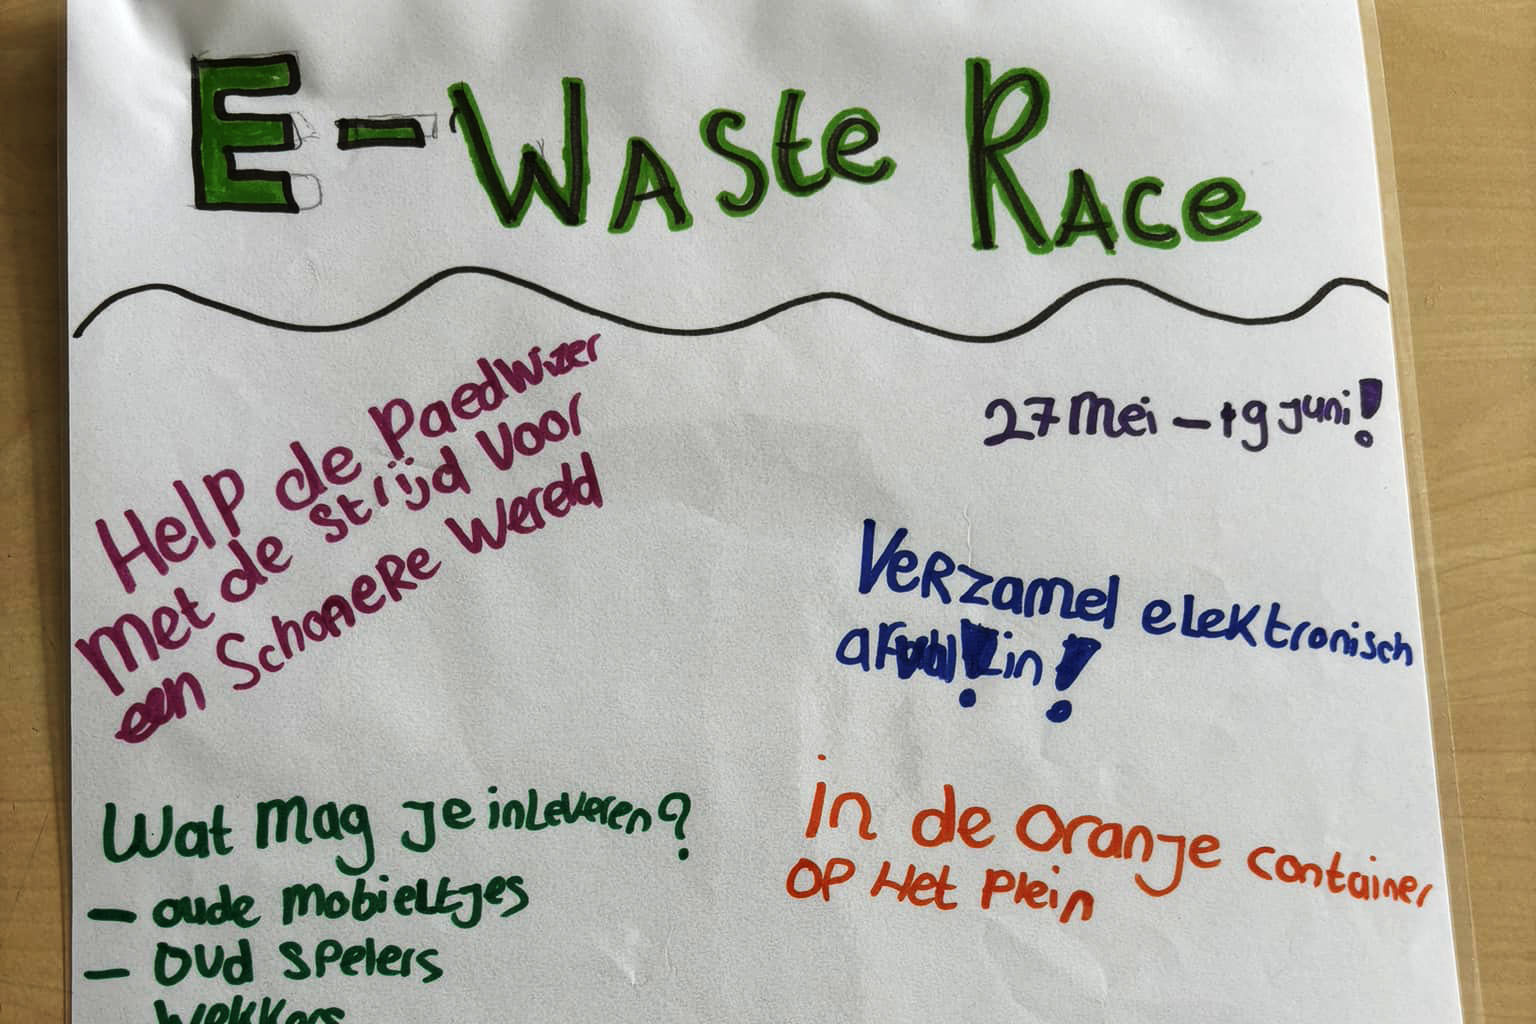 E-Waste Race
27 mei – 19 juni!
Help de Paedwizer
met de strijd voor
een Schonere Wereld
Verzamel elektronisch
afval in!
Wat mag je inleveren?
in de oranje container
op Het Plein
– oude mobieltjes
– oud spelers
wekkers